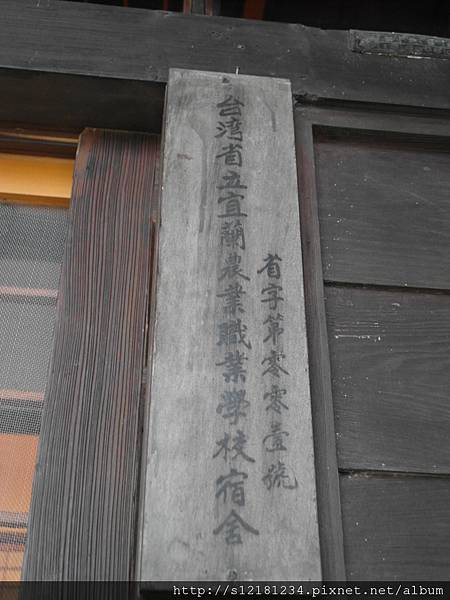 省字第零零壹號
台湾省立宜蘭農業職業學校宿舍
http://s12181234.pixnet.net/album